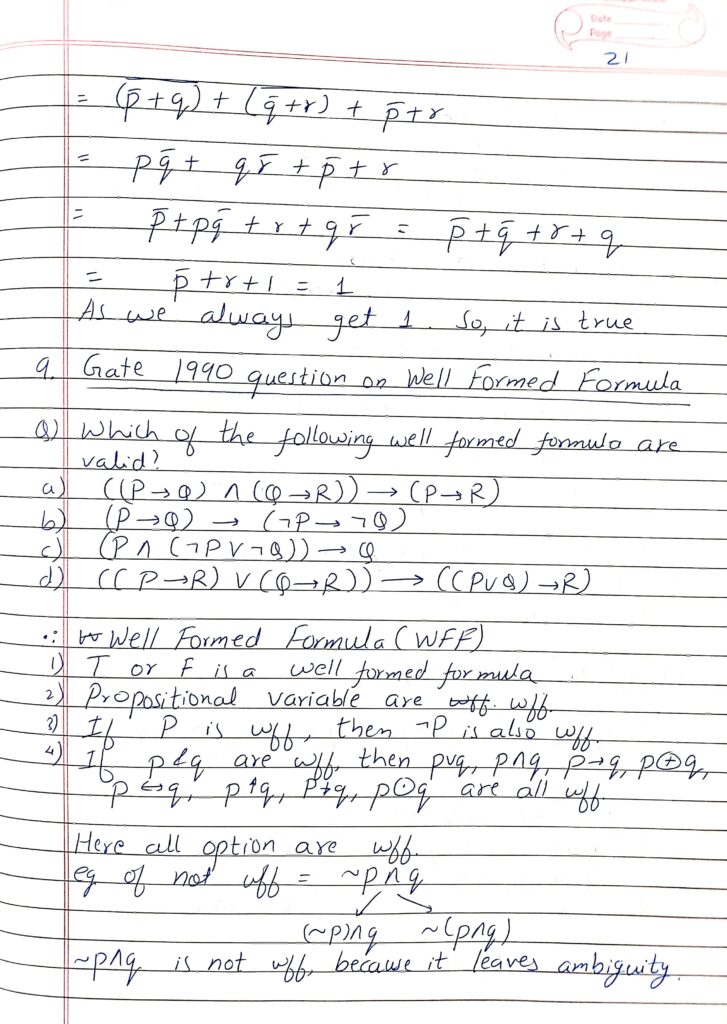 Date
Page
21
= \overline{(p̄+q)} + \overline{(q̄+r)} + p̄+r
= pq̄ + qr̄ + p̄ + r
= p̄ + pq̄ + r + qr̄ = p̄ + q̄ + r + q
= p̄ + r + 1 = 1
As we always get 1. So, it is true
9. Gate 1990 question on Well Formed Formula
Q) Which of the following well formed formula are
valid?
a) ((P → Q) ∧ (Q → R)) → (P → R)
b) (P → Q) → (¬P → ¬Q)
c) (P ∧ (¬P ∨ ¬Q)) → Q
d) ((P → R) ∨ (Q → R)) → ((P ∨ Q) → R)
∴ Well Formed Formula (WFF)
1) T or F is a well formed formula
2) Propositional variable are wff. wff.
3) If P is wff, then ¬P is also wff.
4) If p & q are wff, then p∨q, p∧q, p→q, p⊕q,
p↔q, p↑q, p↓q, p⊙q are all wff
Here all option are wff.
eg of not wff = ~p∧q
(~p)∧q ~(p∧q)
~p∧q is not wff, because it leaves ambiguity.